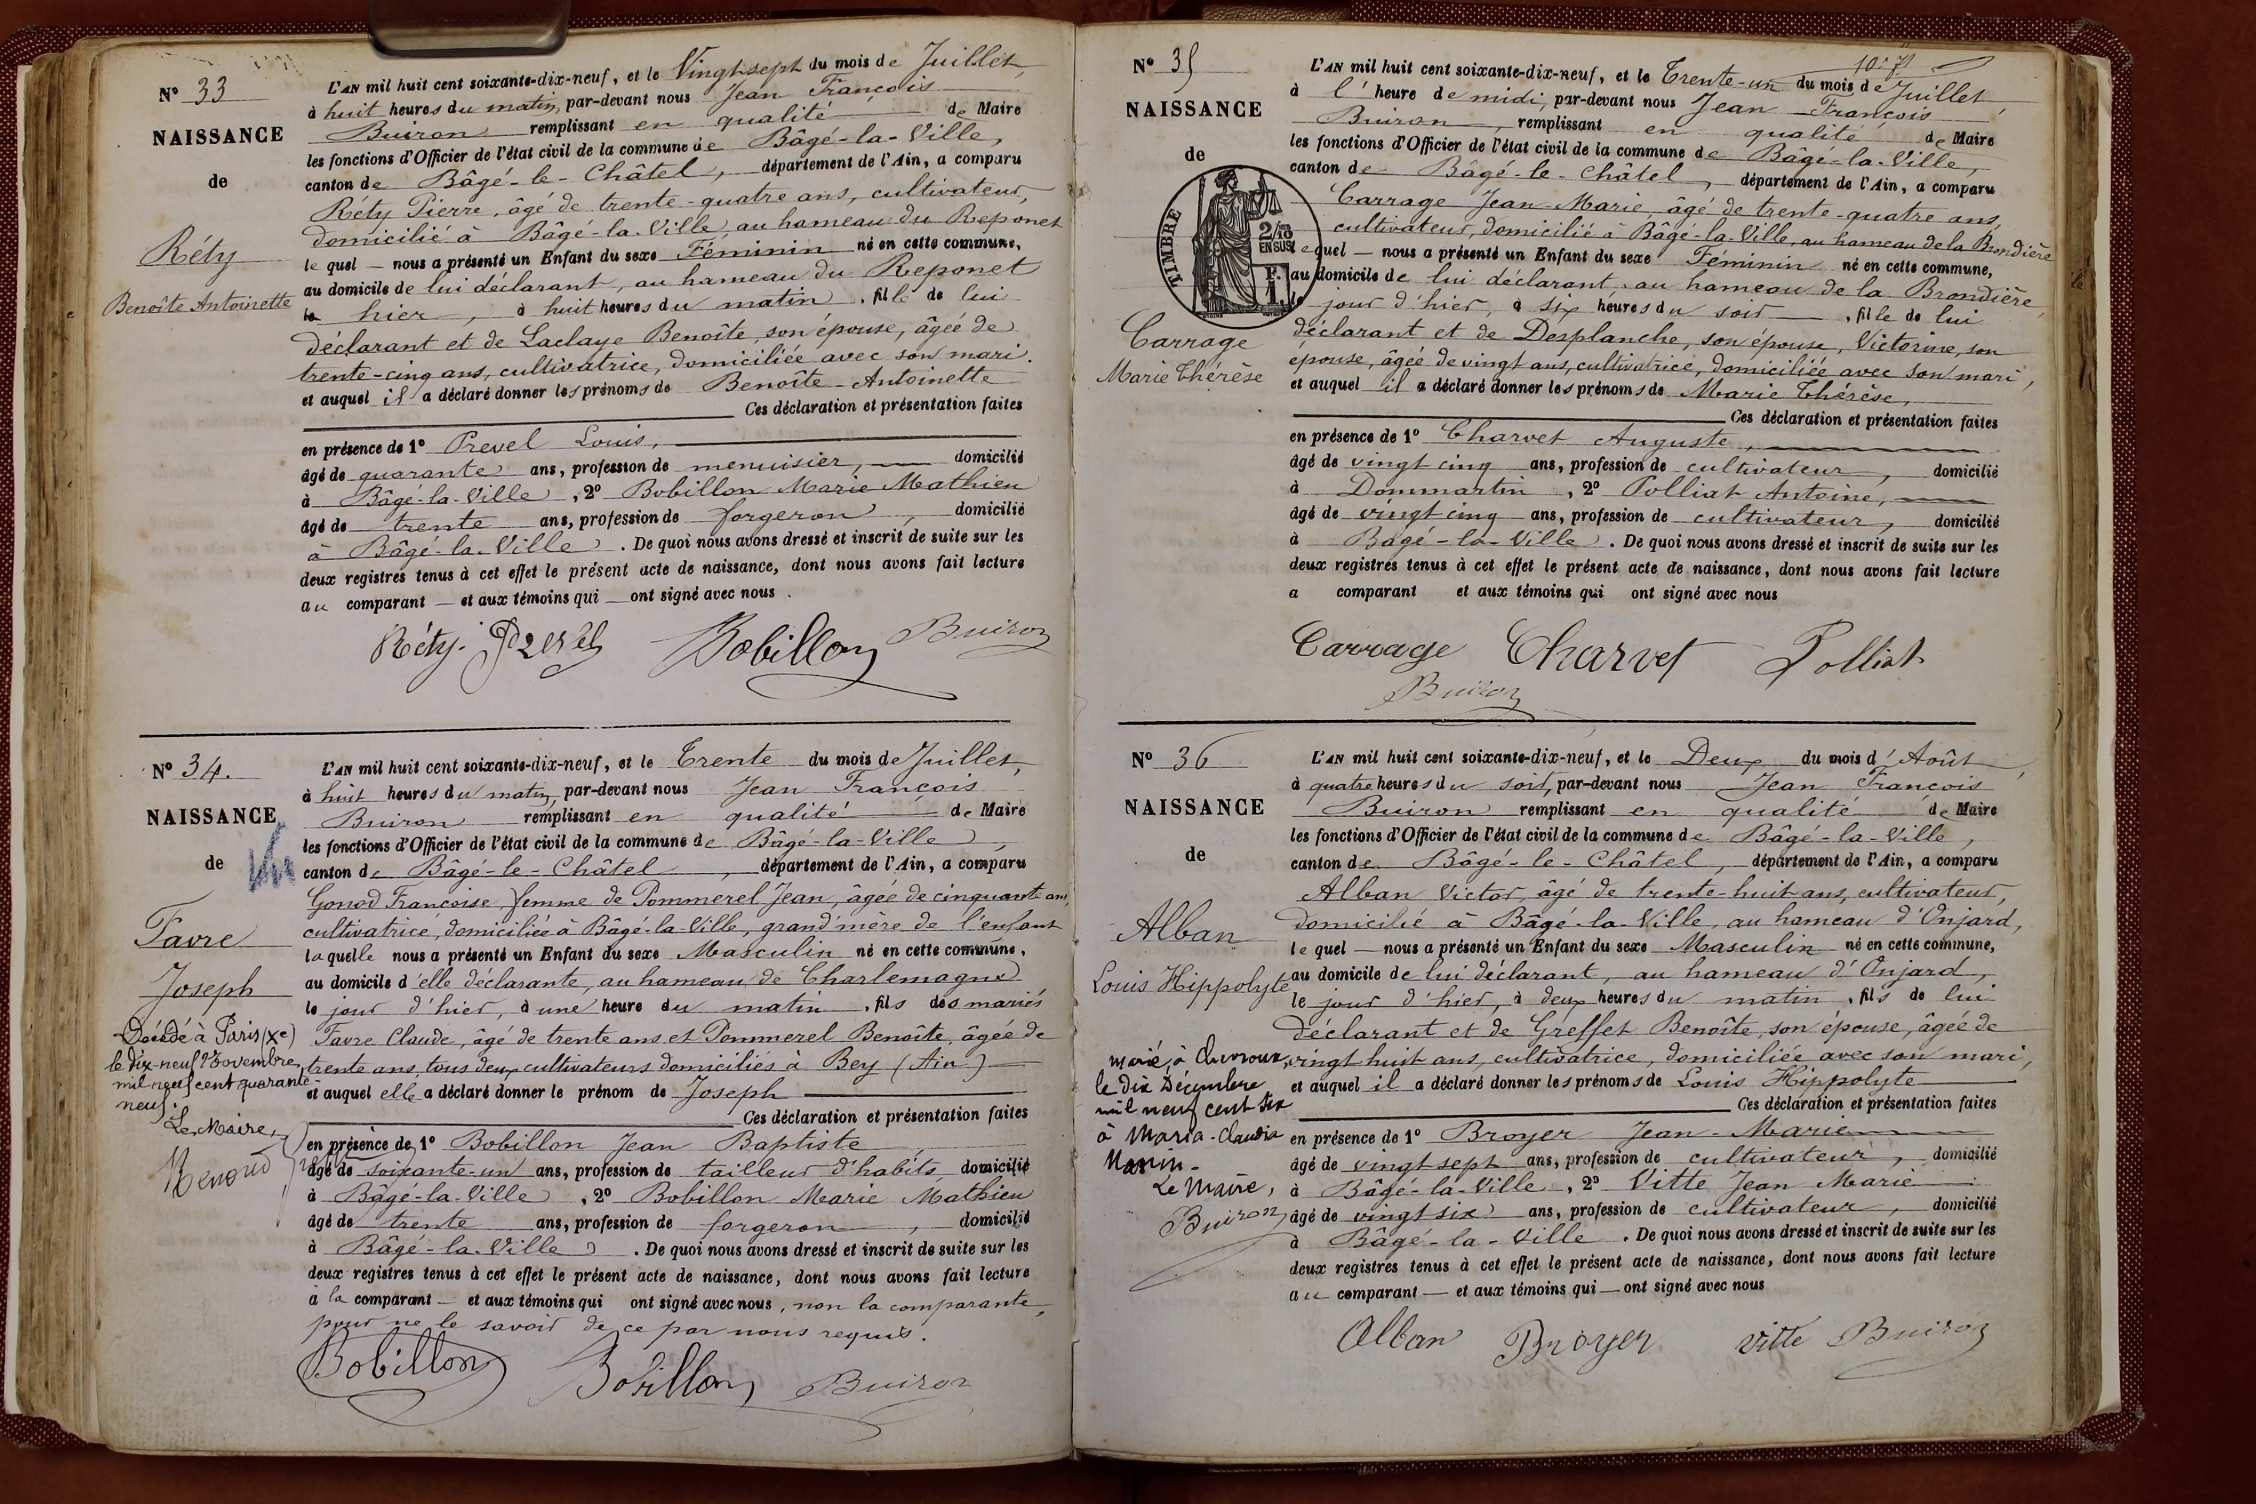 N° 33
NAISSANCE
de
Réty
Benoîte Antoinette
L'AN mil huit cent soixante-dix-neuf, et le Vingt sept du mois de Juillet,
à huit heures du matin, par-devant nous Jean François
Buiron remplissant en qualité de Maire
les fonctions d'Officier de l'état civil de la commune de Bâgé-la-Ville,
canton de Bâgé-le-Châtel, département de l'Ain, a comparu
Réty Pierre, âgé de trente-quatre ans, cultivateur,
domicilié à Bâgé-la-Ville, au hameau du Reponet
lequel — nous a présenté un Enfant du sexe Féminin né en cette commune,
au domicile de lui déclarant, au hameau du Reponet
le hier, à huit heures du matin, fille de lui
déclarant et de Laclaye Benoîte, son épouse, âgée de
trente-cinq ans, cultivatrice, domiciliée avec son mari.
et auquel il a déclaré donner les prénoms de Benoîte-Antoinette
Ces déclaration et présentation faites
en présence de 1° Prevel Louis,
âgé de quarante ans, profession de menuisier, domicilié
à Bâgé-la-Ville, 2° Bobillon Marie Mathieu
âgé de trente ans, profession de forgeron, domicilié
à Bâgé-la-Ville. De quoi nous avons dressé et inscrit de suite sur les
deux registres tenus à cet effet le présent acte de naissance, dont nous avons fait lecture
au comparant — et aux témoins qui — ont signé avec nous.
Réty. Prevel Bobillon Buiron
N° 34.
NAISSANCE
de
Favre
Joseph
Décédé à Paris (Xe)
le dix-neuf Novembre
mil neuf cent quarante
neuf.
Le Maire,
L'AN mil huit cent soixante-dix-neuf, et le Trente du mois de Juillet,
à huit heures du matin, par-devant nous Jean François
Buiron remplissant en qualité de Maire
les fonctions d'Officier de l'état civil de la commune de Bâgé-la-Ville,
canton de Bâgé-le-Châtel, département de l'Ain, a comparu
Gonod Françoise, femme de Pommerel Jean, âgée de cinquante ans,
cultivatrice, domiciliée à Bâgé-la-Ville, grand'mère de l'enfant
laquelle nous a présenté un Enfant du sexe Masculin né en cette commune,
au domicile d'elle déclarante, au hameau de Charlemagne
le jour d'hier, à une heure du matin, fils des mariés
Favre Claude, âgé de trente ans et Pommerel Benoîte, âgée de
trente ans, tous deux cultivateurs domiciliés à Bey (Ain)
et auquel elle a déclaré donner le prénom de Joseph
Ces déclaration et présentation faites
en présence de 1° Bobillon Jean Baptiste
âgé de soixante-un ans, profession de tailleur d'habits domicilié
à Bâgé-la-Ville, 2° Bobillon Marie Mathieu
âgé de trente ans, profession de forgeron, domicilié
à Bâgé-la-Ville. De quoi nous avons dressé et inscrit de suite sur les
deux registres tenus à cet effet le présent acte de naissance, dont nous avons fait lecture
a la comparant — et aux témoins qui ont signé avec nous, non la comparante,
pour ne le savoir de ce par nous requis.
Bobillon Bobillon Buiron
N° 35
NAISSANCE
de
TIMBRE
2/10
EN SUS
F.
1.
Carrage
Marie Thérèse
L'AN mil huit cent soixante-dix-neuf, et le Trente-un du mois de Juillet,
à l'heure de midi, par-devant nous Jean François
Buiron, remplissant en qualité de Maire
les fonctions d'Officier de l'état civil de la commune de Bâgé-la-Ville,
canton de Bâgé-le-Châtel, département de l'Ain, a comparu
Carrage Jean-Marie, âgé de trente-quatre ans,
cultivateur, domicilié à Bâgé-la-Ville, au hameau de la Brondière
lequel — nous a présenté un Enfant du sexe Féminin né en cette commune,
au domicile de lui déclarant, au hameau de la Brondière,
le jour d'hier, à six heures du soir, fille de lui
déclarant et de Desplanche, son épouse, Victorine, son
épouse, âgée de vingt ans, cultivatrice, domiciliée avec son mari,
et auquel il a déclaré donner les prénoms de Marie Thérèse,
Ces déclaration et présentation faites
en présence de 1° Charvet Auguste,
âgé de vingt cinq ans, profession de cultivateur, domicilié
à Dommartin, 2° Polliat Antoine,
âgé de vingt cinq ans, profession de cultivateur, domicilié
à Bâgé-la-Ville. De quoi nous avons dressé et inscrit de suite sur les
deux registres tenus à cet effet le présent acte de naissance, dont nous avons fait lecture
a comparant et aux témoins qui ont signé avec nous
Carrage Charvet Polliat
Buiron
N° 36
NAISSANCE
de
Alban
Louis Hippolyte
marié à Chevroux
le dix Décembre
mil neuf cent six
à Maria-Claudia
Manin.
Le Maire,
Buiron
L'AN mil huit cent soixante-dix-neuf, et le Deux du mois d'Août,
à quatre heures du soir, par-devant nous Jean François
Buiron remplissant en qualité de Maire
les fonctions d'Officier de l'état civil de la commune de Bâgé-la-Ville,
canton de Bâgé-le-Châtel, département de l'Ain, a comparu
Alban Victor, âgé de trente-huit ans, cultivateur,
domicilié à Bâgé-la-Ville, au hameau d'Onjard,
lequel — nous a présenté un Enfant du sexe Masculin né en cette commune,
au domicile de lui déclarant, au hameau d'Onjard,
le jour d'hier, à deux heures du matin, fils de lui
déclarant et de Greffet Benoîte, son épouse, âgée de
vingt huit ans, cultivatrice, domiciliée avec son mari,
et auquel il a déclaré donner les prénoms de Louis Hippolyte
Ces déclaration et présentation faites
en présence de 1° Broyer Jean-Marie
âgé de vingt sept ans, profession de cultivateur, domicilié
à Bâgé-la-Ville, 2° Vitte Jean Marie
âgé de vingt six ans, profession de cultivateur, domicilié
à Bâgé-la-Ville. De quoi nous avons dressé et inscrit de suite sur les
deux registres tenus à cet effet le présent acte de naissance, dont nous avons fait lecture
au comparant — et aux témoins qui — ont signé avec nous
Alban Broyer Vitte Buiron